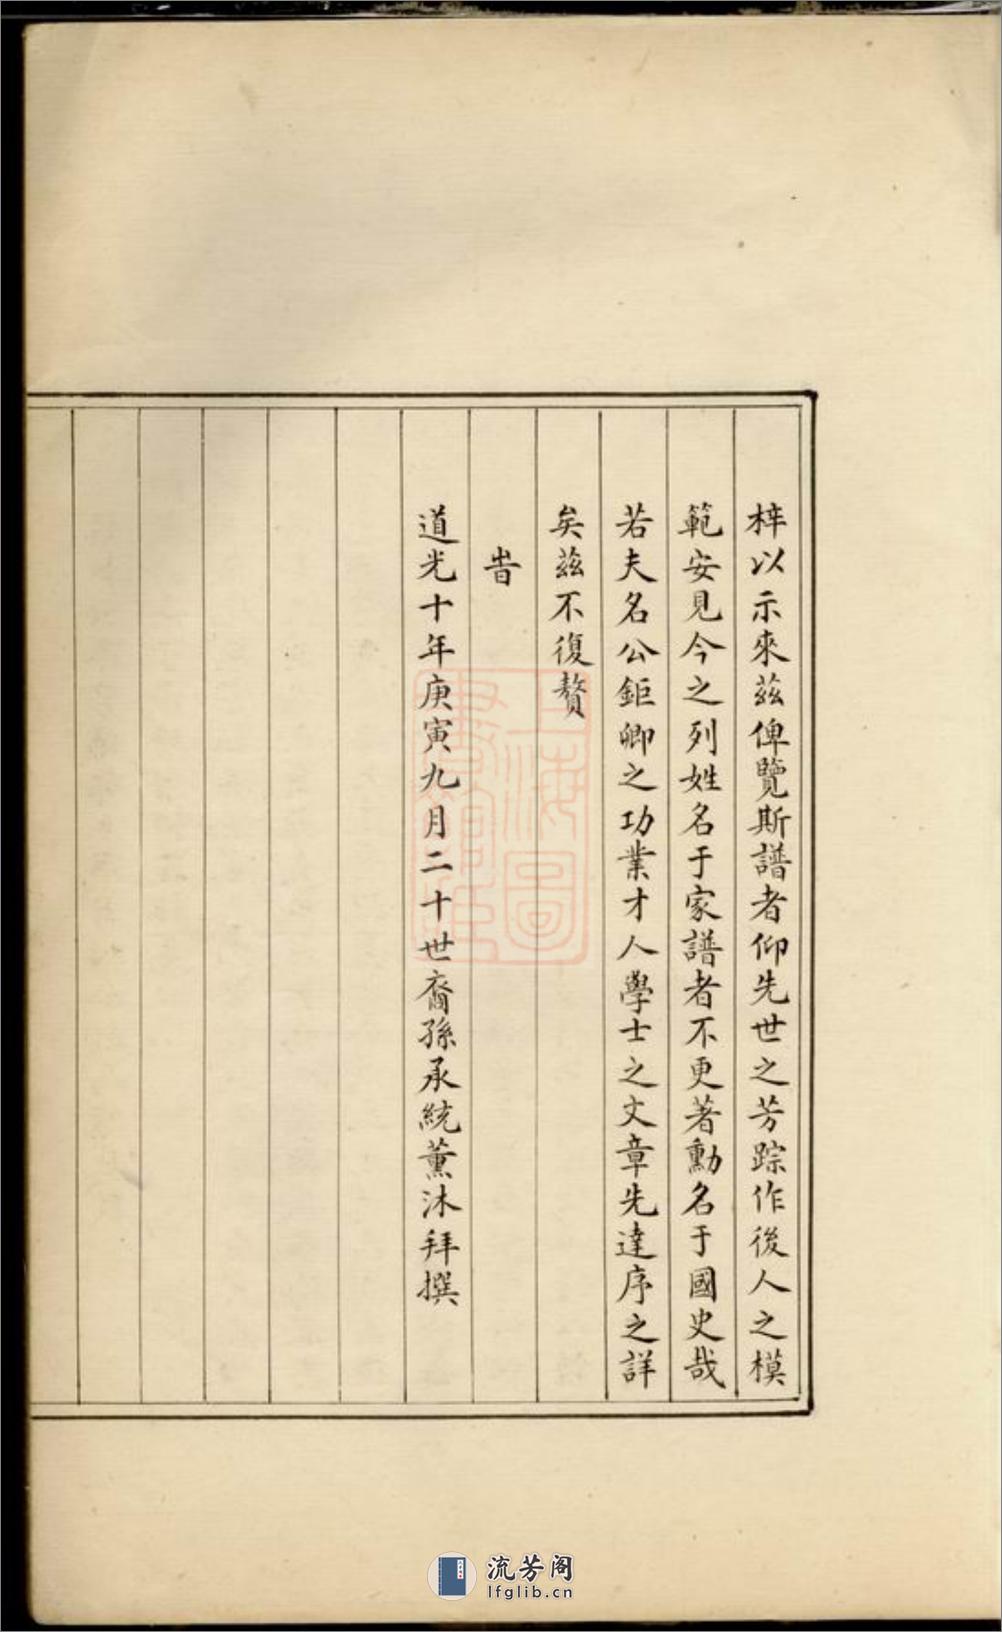 梓以示來茲俾覽斯譜者仰先世之芳踪作後人之模
範安見今之列姓名于家譜者不更著勳名于國史哉
若夫名公鉅卿之功業才人學士之文章先達序之詳
矣茲不復贅
旹
道光十年庚寅九月二十世裔孫承統薰沐拜撰
上海圖
書館藏
流芳阁
lfglib.cn